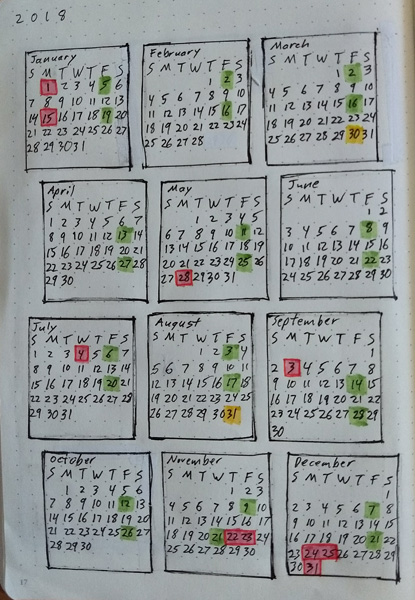 2018
January
S M T W T F S
1 2 3 4 5 6
7 8 9 10 11 12 13
14 15 16 17 18 19 20
21 22 23 24 25 26 27
28 29 30 31
February
S M T W T F S
1 2 3
4 5 6 7 8 9 10
11 12 13 14 15 16 17
18 19 20 21 22 23 24
25 26 27 28
March
S M T W T F S
1 2 3
4 5 6 7 8 9 10
11 12 13 14 15 16 17
18 19 20 21 22 23 24
25 26 27 28 29 30 31
April
S M T W T F S
1 2 3 4 5 6 7
8 9 10 11 12 13 14
15 16 17 18 19 20 21
22 23 24 25 26 27 28
29 30
May
S M T W T F S
1 2 3 4 5
6 7 8 9 10 11 12
13 14 15 16 17 18 19
20 21 22 23 24 25 26
27 28 29 30 31
June
S M T W T F S
1 2
3 4 5 6 7 8 9
10 11 12 13 14 15 16
17 18 19 20 21 22 23
24 25 26 27 28 29 30
July
S M T W T F S
1 2 3 4 5 6 7
8 9 10 11 12 13 14
15 16 17 18 19 20 21
22 23 24 25 26 27 28
29 30 31
August
S M T W T F S
1 2 3 4
5 6 7 8 9 10 11
12 13 14 15 16 17 18
19 20 21 22 23 24 25
26 27 28 29 30 31
September
S M T W T F S
1
2 3 4 5 6 7 8
9 10 11 12 13 14 15
16 17 18 19 20 21 22
23 24 25 26 27 28 29
30
October
S M T W T F S
1 2 3 4 5 6
7 8 9 10 11 12 13
14 15 16 17 18 19 20
21 22 23 24 25 26 27
28 29 30
November
S M T W T F S
1 2 3
4 5 6 7 8 9 10
11 12 13 14 15 16 17
18 19 20 21 22 23 24
25 26 27 28 29 30
December
S M T W T F S
1
2 3 4 5 6 7 8
9 10 11 12 13 14 15
16 17 18 19 20 21 22
23 24 25 26 27 28 29
30 31